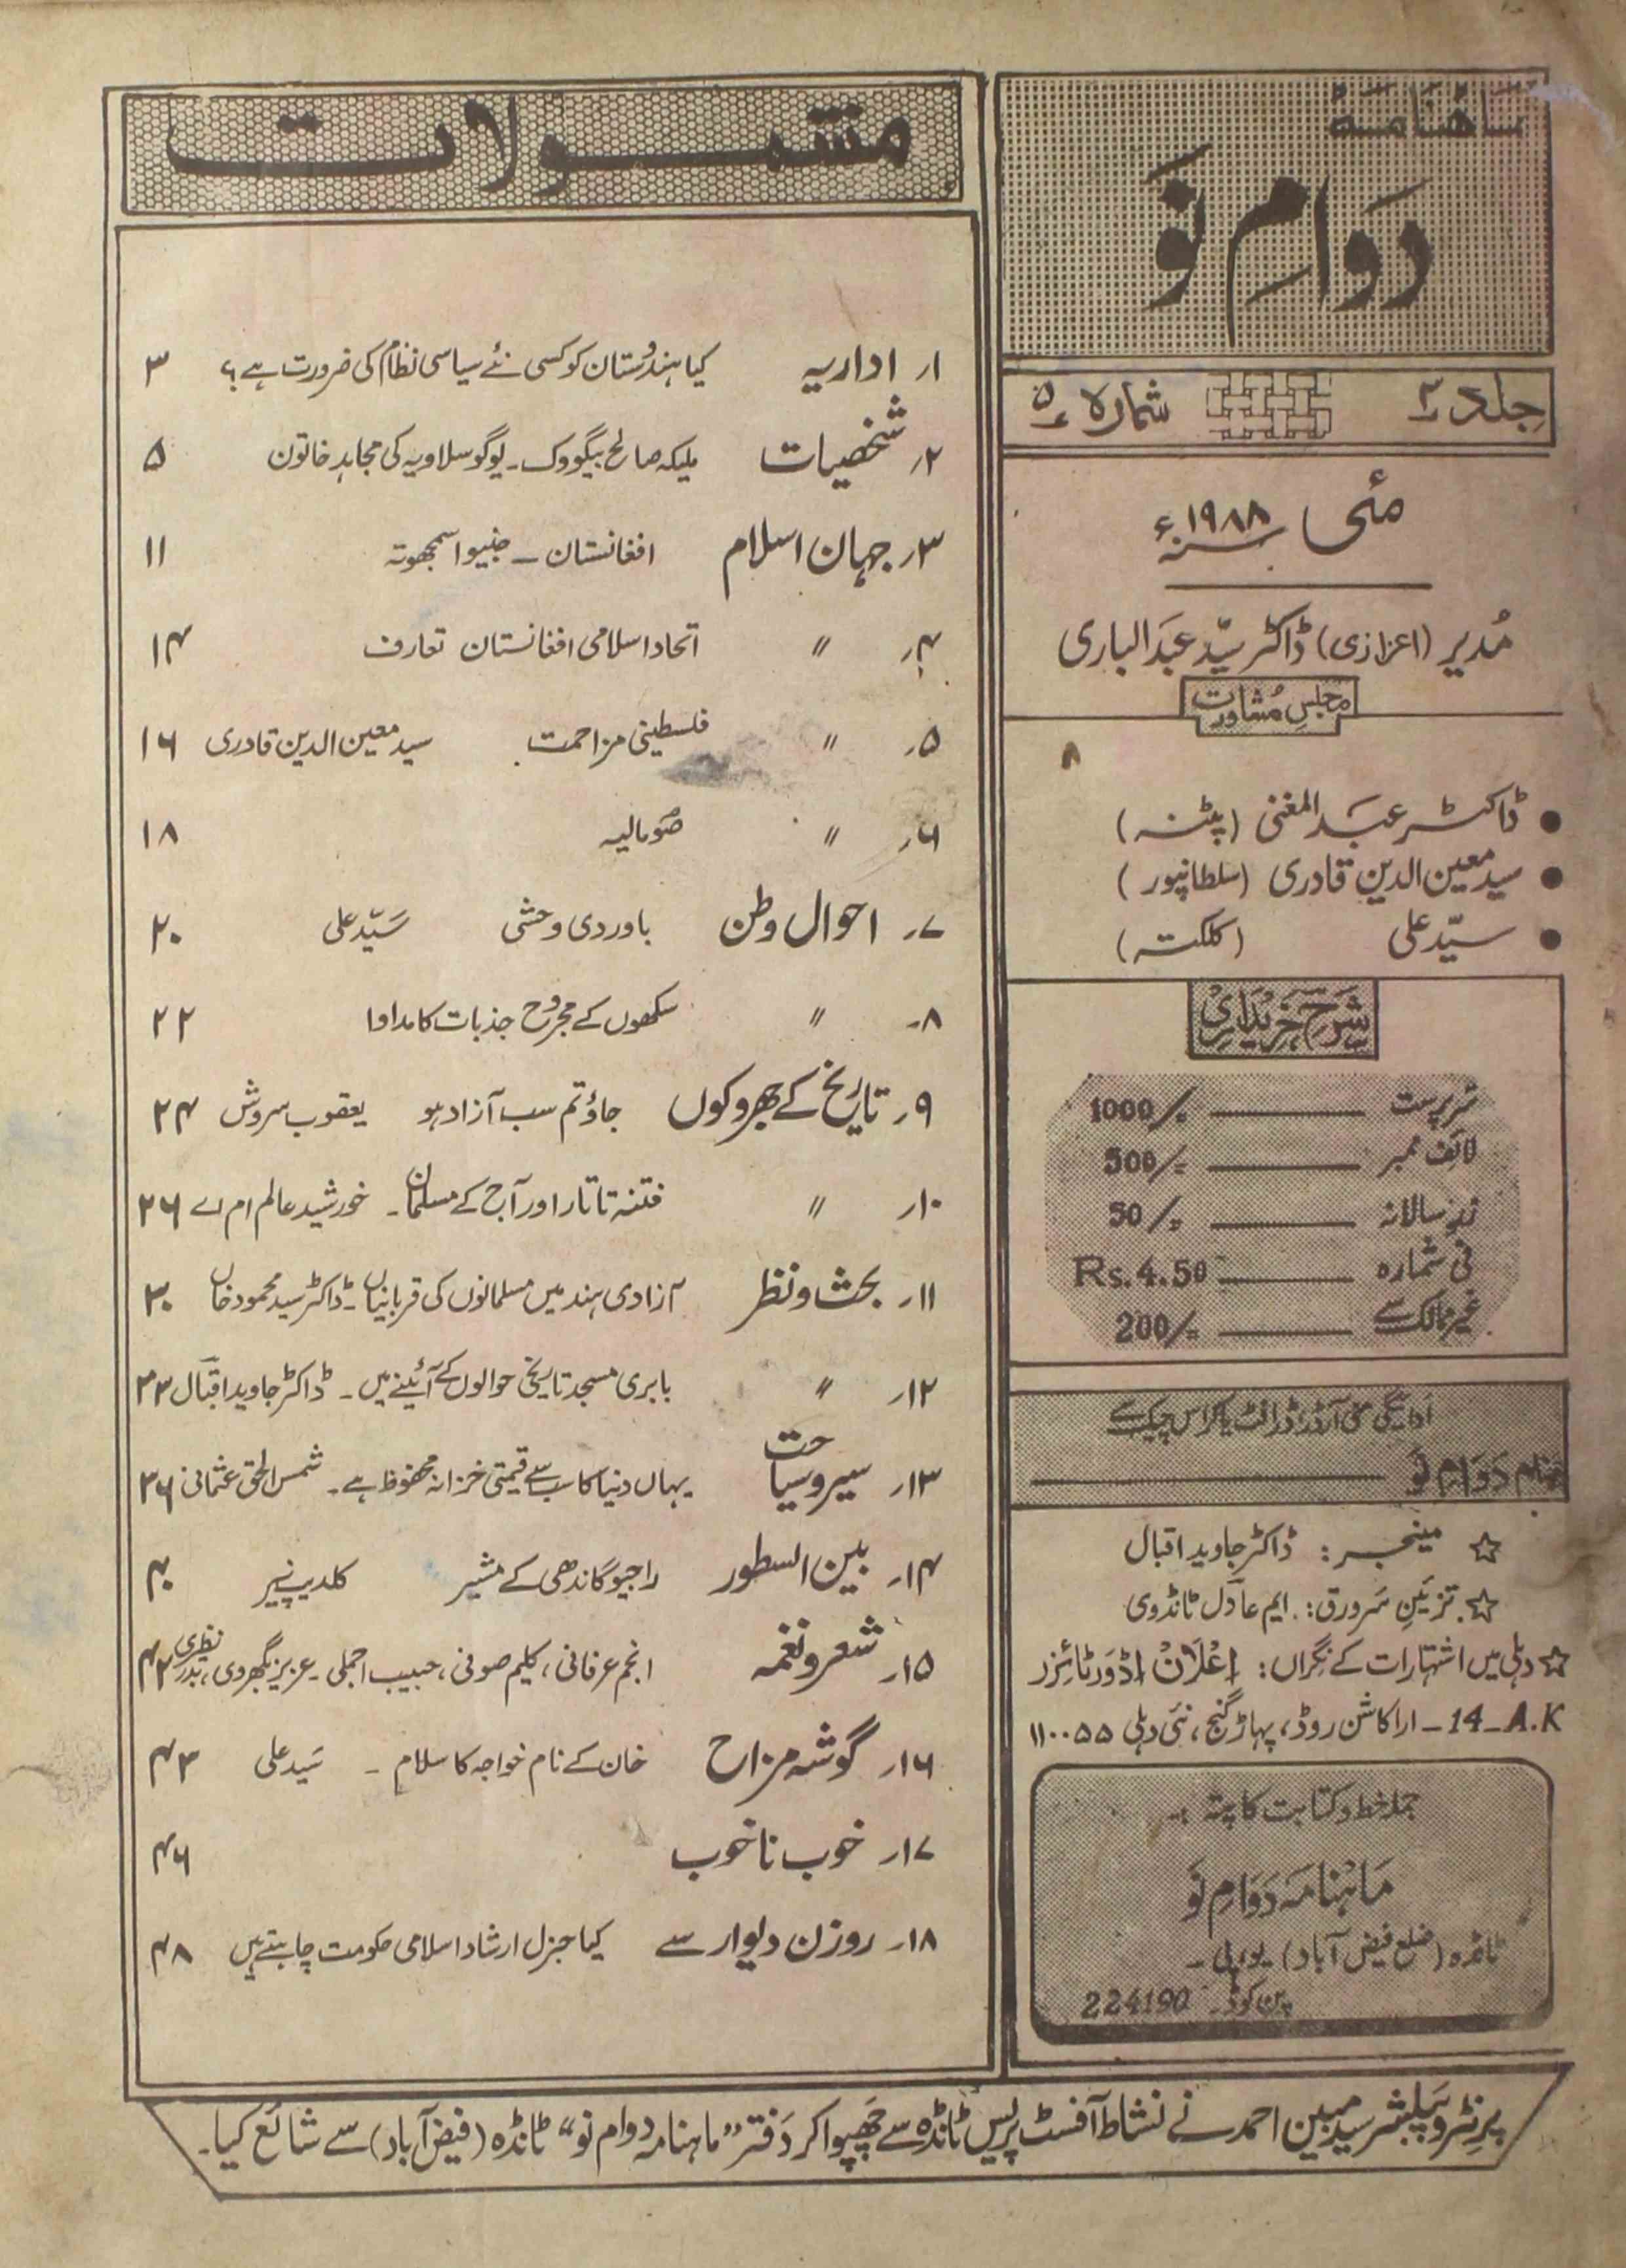 ماہنامہ
دوامِ نَو
جلد ۳ شمارہ ۵
مئی ۱۹۸۸ء
مُدیر (اعزازی) ڈاکٹر سیّد عبدالباری
مجلسِ مُشاورت
● ڈاکٹر عبدالمغنی (پٹنہ)
● سید معین الدین قادری (سلطانپور)
● سیّد علی (کلکتہ)
شرحِ خریداری
سرپرست ——— 1000/=
لائف ممبر ——— 500/=
زرِ سالانہ ——— 50/=
فی شمارہ ——— Rs.4.50
غیر ممالک سے ——— 200/=
ادائیگی منی آرڈر ڈرافٹ یا کراس چیک سے
بنام دَوامِ نَو ———
☆ مینیجر : ڈاکٹر جاوید اقبال
☆ تزئینِ سرورق : ایم عادل ٹانڈوی
☆ دہلی میں اشتہارات کے نگراں : اعلان اڈورٹائزز
14-A.K – اراکاشن روڈ، پہاڑ گنج، نئی دہلی ۱۱۰۰۵۵
جملہ خط و کتابت کا پتہ :-
ماہنامہ دَوامِ نَو
ٹانڈہ (ضلع فیض آباد) یو۔پی۔
پن کوڈ۔ 224190
مشمولات
۱۔ اداریہ کیا ہندوستان کو کسی نئے سیاسی نظام کی ضرورت ہے؟ ۳
۲۔ شخصیات ملیکہ صالح بیگووک۔ یوگوسلاویہ کی مجاہد خاتون ۵
۳۔ جہان اسلام افغانستان – جنیوا سمجھوتہ ۱۱
۴۔ " اتحاد اسلامی افغانستان تعارف ۱۴
۵۔ " فلسطینی مزاحمت سید معین الدین قادری ۱۶
۶۔ " صومالیہ ۱۸
۷۔ احوال وطن باوردی وحشی سیّد علی ۲۰
۸۔ " سکھوں کے مجروح جذبات کا مداوا ۲۲
۹۔ تاریخ کے جھروکوں جاؤ تم سب آزاد ہو یعقوب سروش ۲۴
۱۰۔ " فتنہ تاتار اور آج کے مسلمان۔ خورشید عالم ام اے ۲۶
۱۱۔ بحث و نظر آزادی ہند میں مسلمانوں کی قربانیاں۔ ڈاکٹر سید محمود خاں ۳۰
۱۲۔ " بابری مسجد تاریخی حوالوں کے آئینے میں۔ ڈاکٹر جاوید اقبال ۳۳
۱۳۔ سیر و سیاحت یہاں دنیا کا سب سے قیمتی خزانہ محفوظ ہے۔ شمس الحق عثمانی ۳۶
۱۴۔ بین السطور راجیو گاندھی کے مشیر کلدیپ نیر ۴۰
۱۵۔ شعر و نغمہ انجم عرفانی، کلیم صوفی، حبیب اجملی۔ عزیز بگھروی، بدر نظری ۴۲
۱۶۔ گوشہ مزاح خان کے نام خواجہ کا سلام – سید علی ۴۳
۱۷۔ خوب ناخوب ۴۶
۱۸۔ روزن دیوار سے کیا جنرل ارشاد اسلامی حکومت چاہتے ہیں ۴۸
پرنٹر و پبلشر سید مبین احمد نے نشاط آفسٹ پریس ٹانڈہ سے چھپوا کر دفتر "ماہنامہ دوام نو" ٹانڈہ (فیض آباد) سے شائع کیا۔